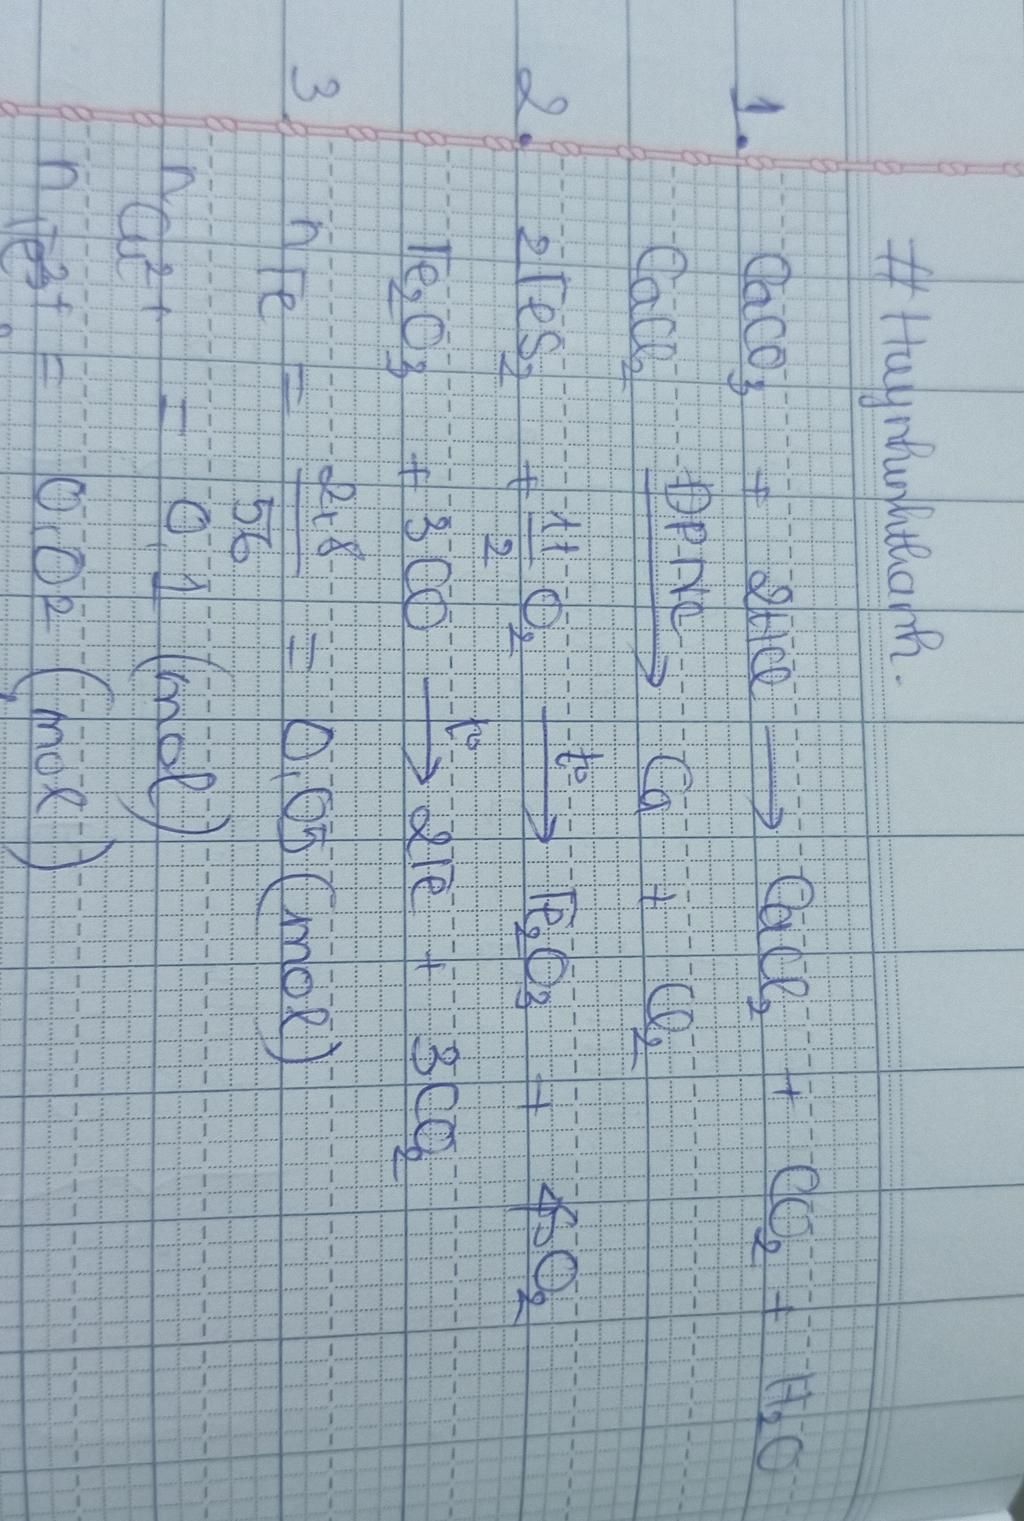 # Huynhunhthanh.
1. CaCO₃ + 2HCl → CaCl₂ + CO₂ + H₂O
CaCl₂ ĐPNC → Ca + Cl₂
2. 2FeS₂ + 11/2 O₂ t° → Fe₂O₃ + 4SO₂
Fe₂O₃ + 3CO t° → 2Fe + 3CO₂
3 n Fe = 2,8/56 = 0,05 (mol)
n Cu²⁺ = 0,1 (mol)
n Fe³⁺ = 0,02 (mol)